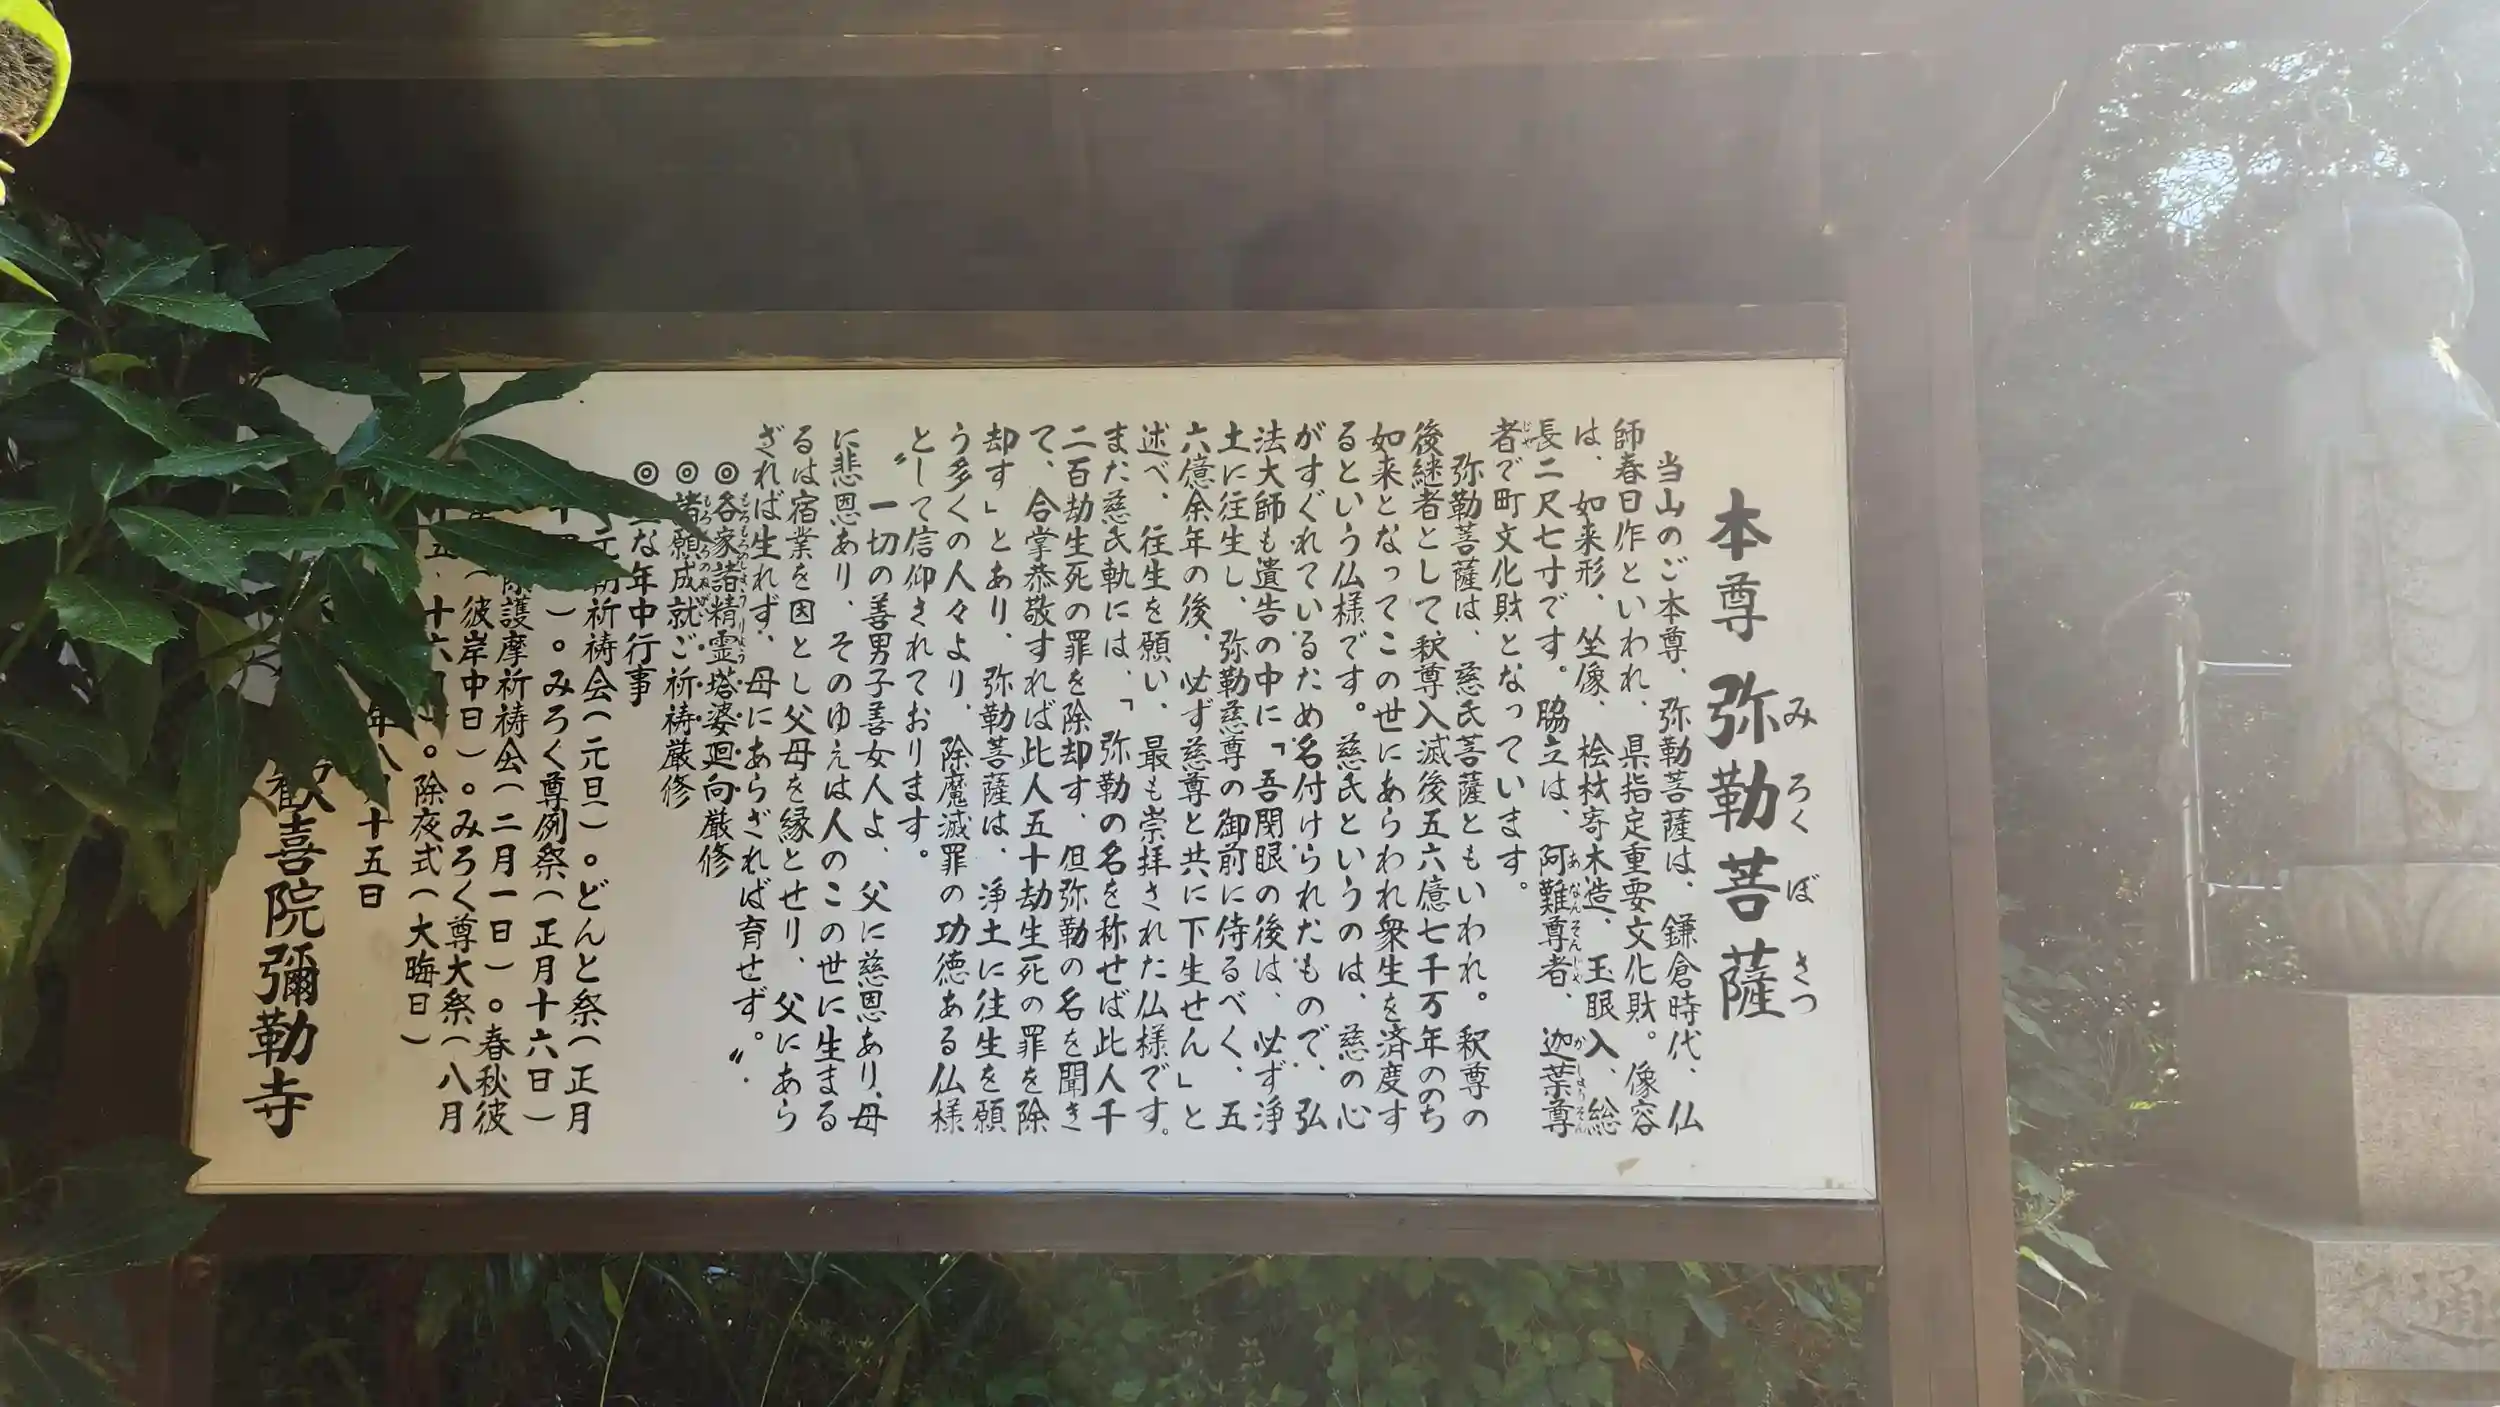 本尊 弥勒菩薩
みろくぼさつ
当山のご本尊、弥勒菩薩は、鎌倉時代、仏
師春日作といわれ、県指定重要文化財。像容
は、如来形、坐像、桧材寄木造、玉眼入、総
長二尺七寸です。脇立は、阿難尊者、迦葉尊
あなんそんじゃ かしょうそん
者で町文化財となっています。
じゃ
弥勒菩薩は、慈氏菩薩ともいわれ。釈尊の
後継者として釈尊入滅後五六億七千万年ののち
如来となってこの世にあらわれ衆生を済度す
るという仏様です。慈氏というのは、慈の心
がすぐれているため名付けられたもので、弘
法大師も遺告の中に「吾閉眼の後は、必ず浄
土に往生し、弥勒慈尊の御前に侍るべく、五
六億余年の後、必ず慈尊と共に下生せん」と
述べ、往生を願い、最も崇拝された仏様です。
また慈氏軌には、「弥勒の名を称せば此人千
二百劫生死の罪を除却す、但弥勒の名を聞き
て、合掌恭敬すれば此人五十劫生死の罪を除
却す」とあり、弥勒菩薩は、浄土に往生を願
う多くの人々より、除魔滅罪の功徳ある仏様
として信仰されております。
〝一切の善男子善女人よ、父に慈恩あり、母
に悲恩あり、そのゆえは人のこの世に生まる
るは宿業を因とし父母を縁とせり、父にあら
ざれば生れず、母にあらざれば育せず。〟
◎各家諸精霊塔婆廻向厳修
もろもろのしょうりょう
◎諸願成就ご祈祷厳修
◎な年中行事
祈祷会(元旦)。どんと祭(正月
)。みろく尊例祭(正月十六日)
護摩祈祷会(二月一日)。春秋彼
(彼岸中日)。みろく尊大祭(八月
十六)。除夜式(大晦日)
年八 十五日
歓喜院彌勒寺
通